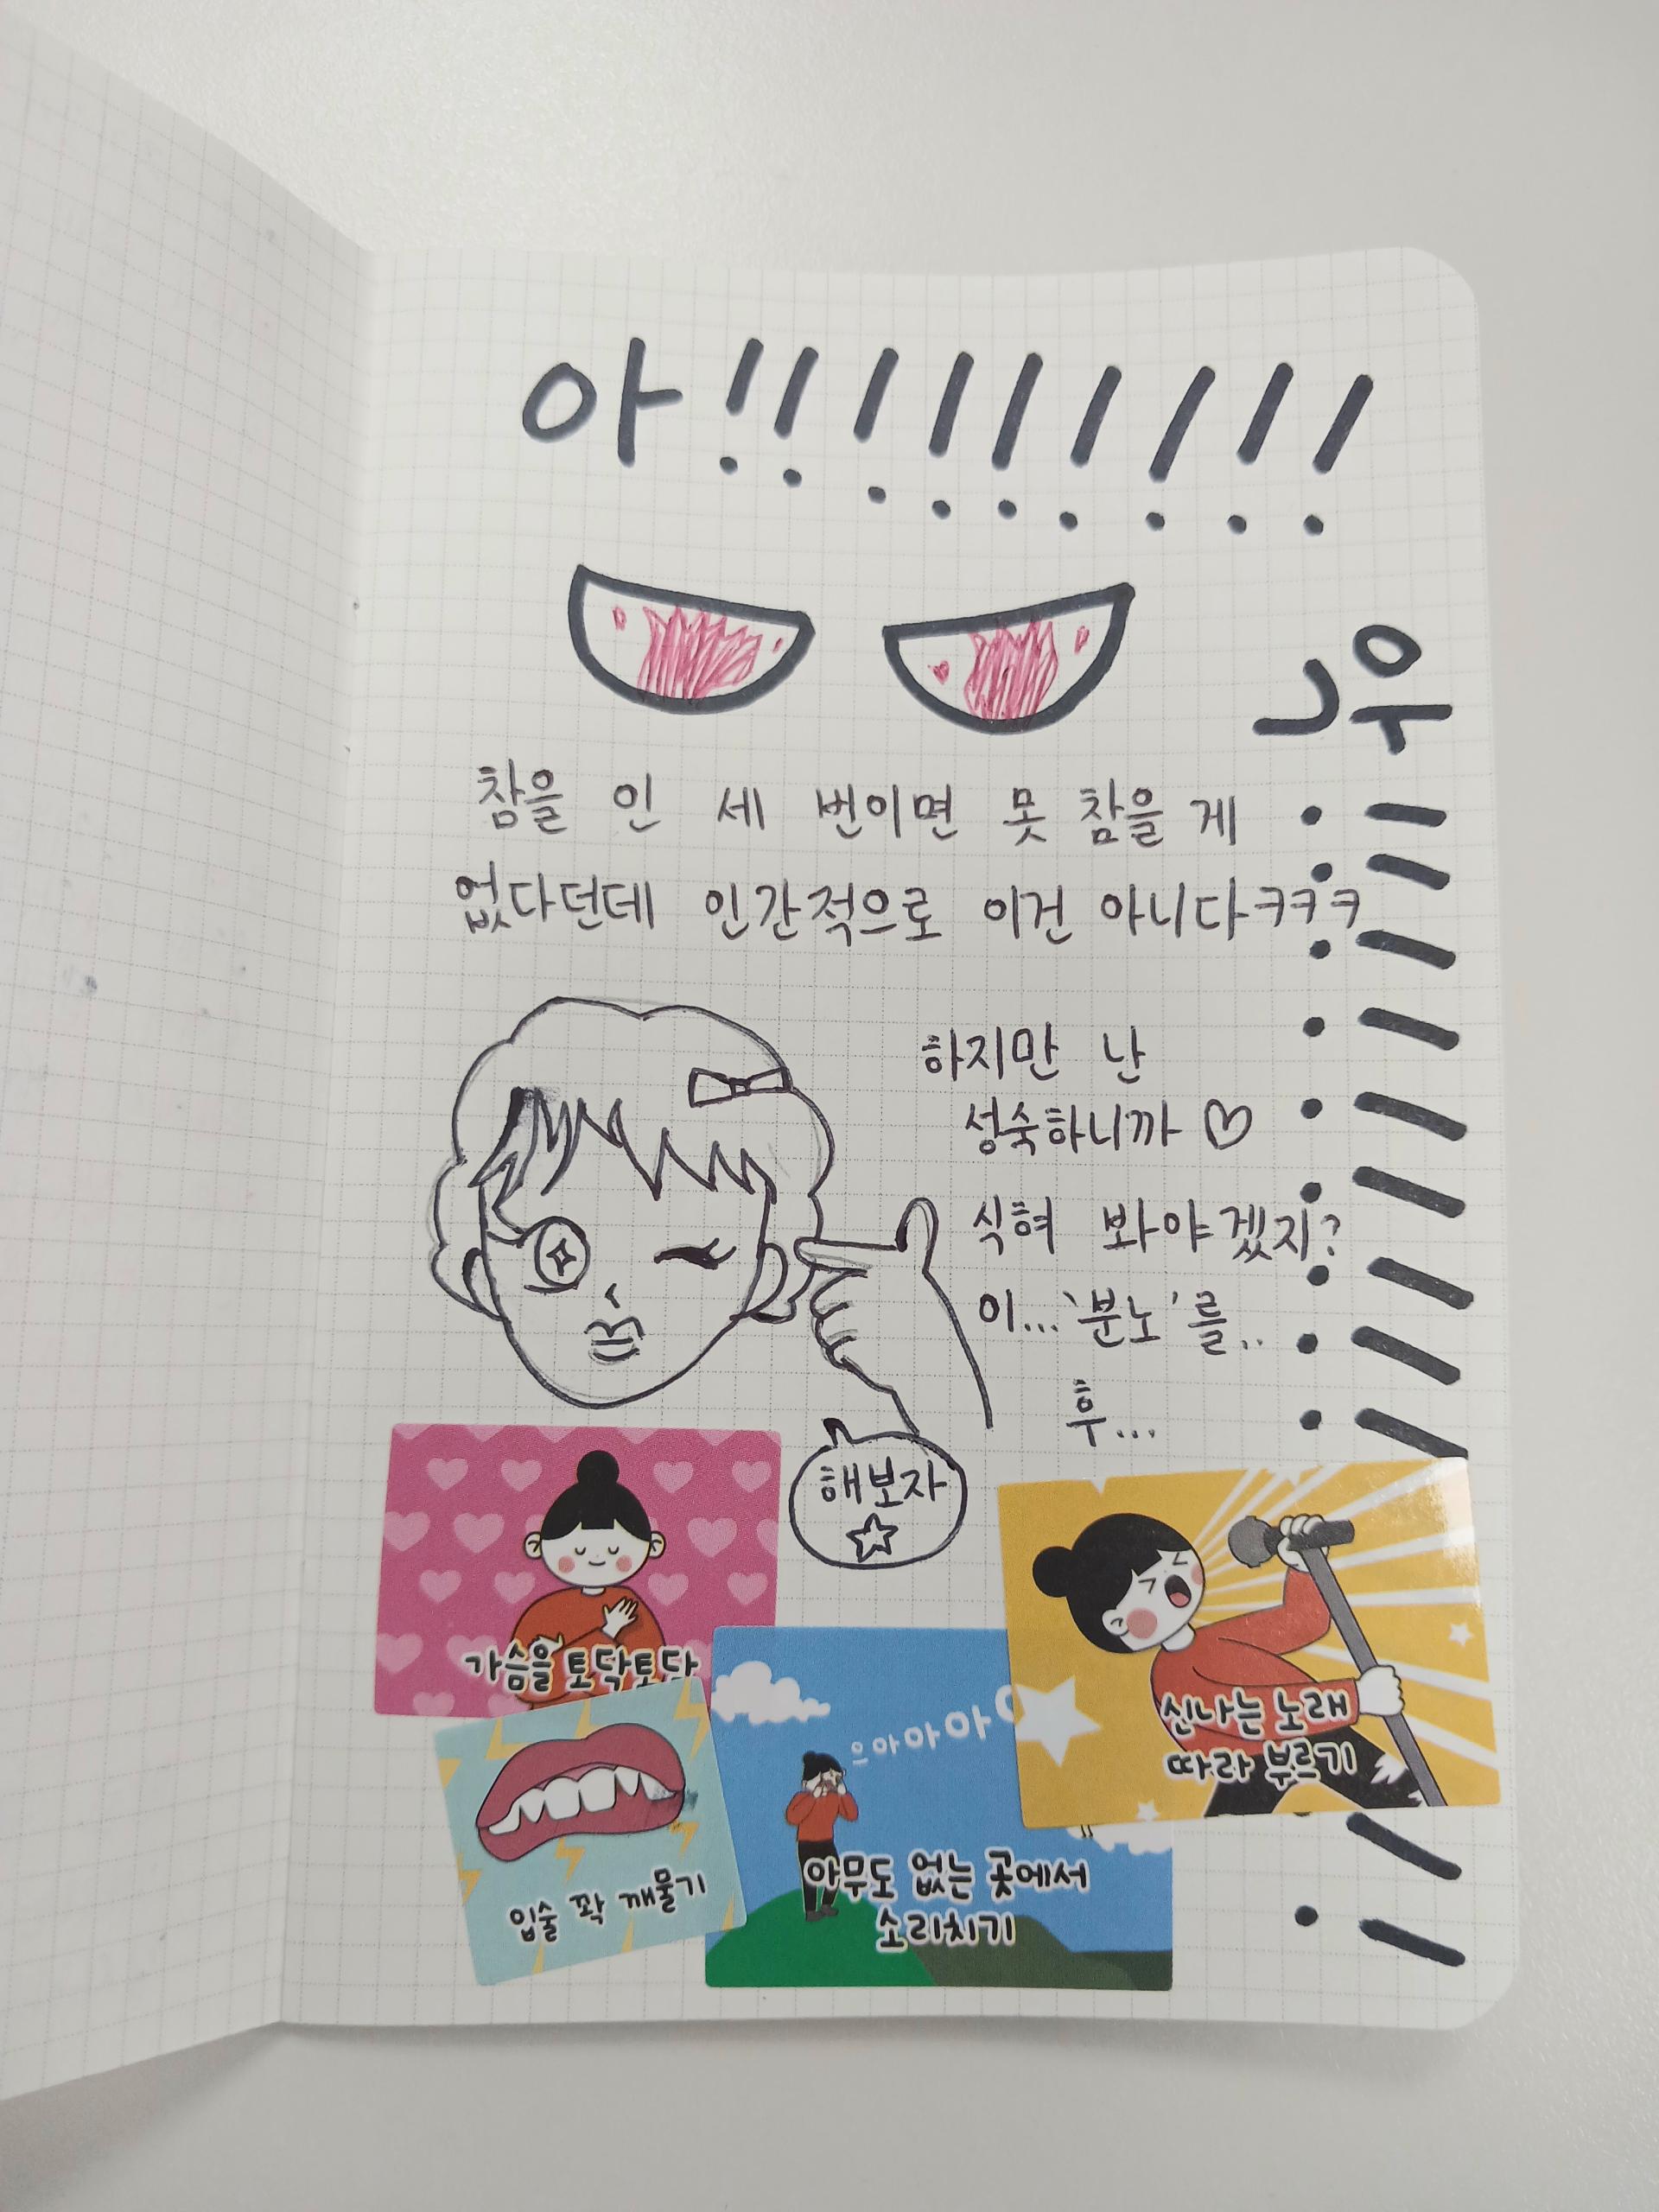 아!!!!!!!!!
악!!!!!!!!!!!
참을 인 세 번이면 못 참을 게
없다던데 인간적으로 이건 아니다ㅋㅋㅋ
하지만 난
성숙하니까 ♡
식혀 봐야겠지?
이...'분노'를..
후...
해보자
☆
가슴을 토닥토닥
신나는 노래
따라 부르기
으아아아
입술 꽉 깨물기
아무도 없는 곳에서
소리치기